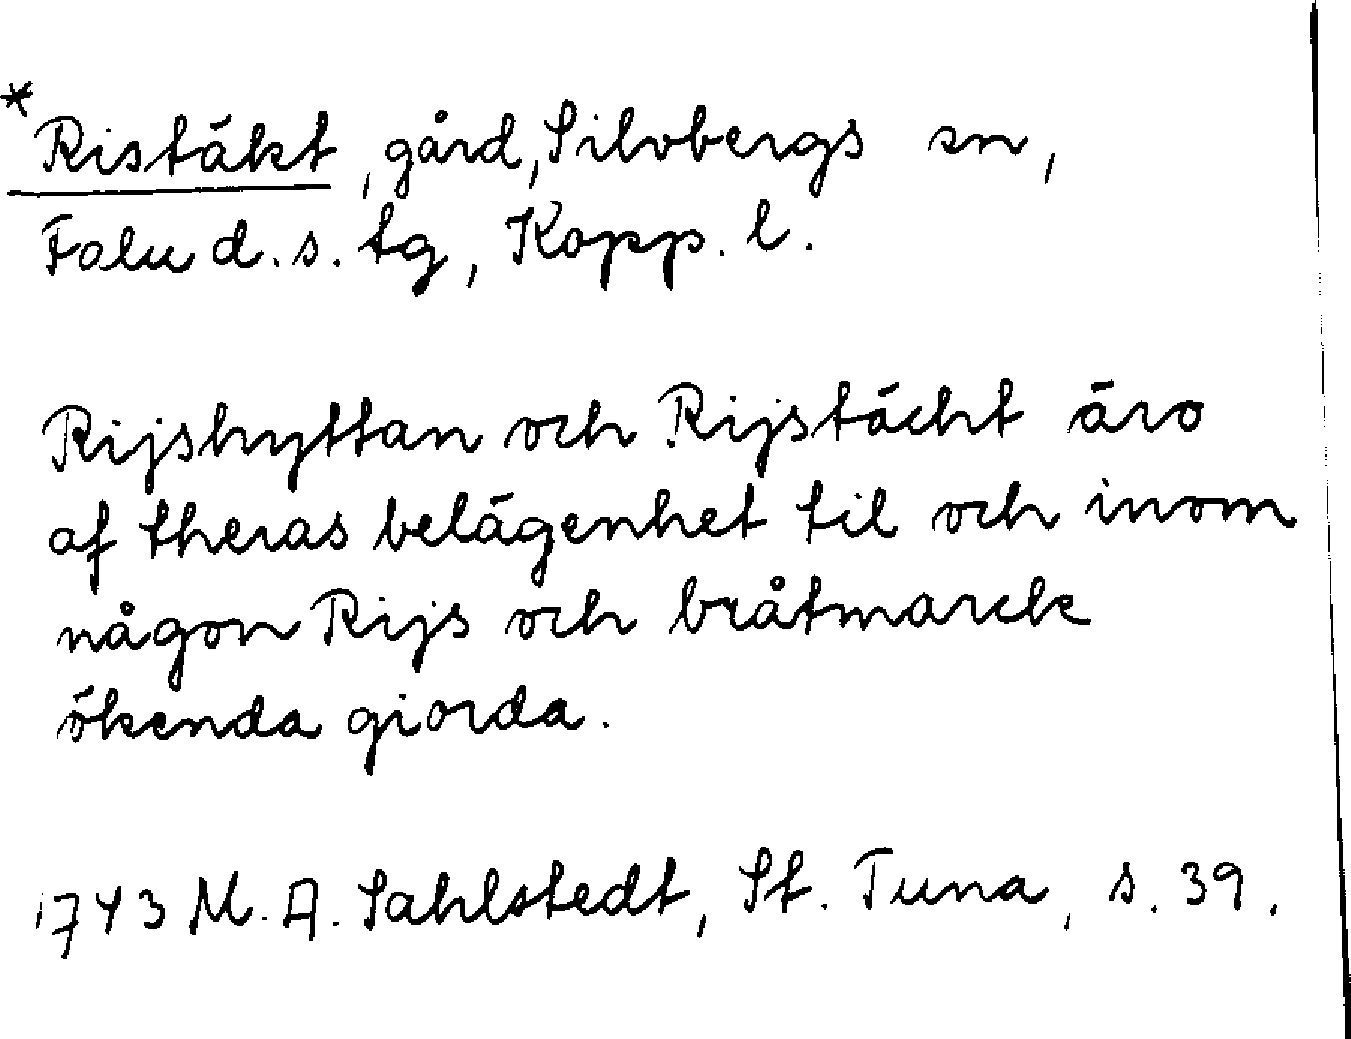 *Ristäkt, gård, Silvbergs sn,
Falu d.s. tg, Kopp. l.
Rijshyttan och Rijstächt äro
af theras belägenhet til och inom
någon Rijs och bråtmarck
ökenda giorda.
1743 M. A. Sahlstedt, St. Tuna, s. 39.